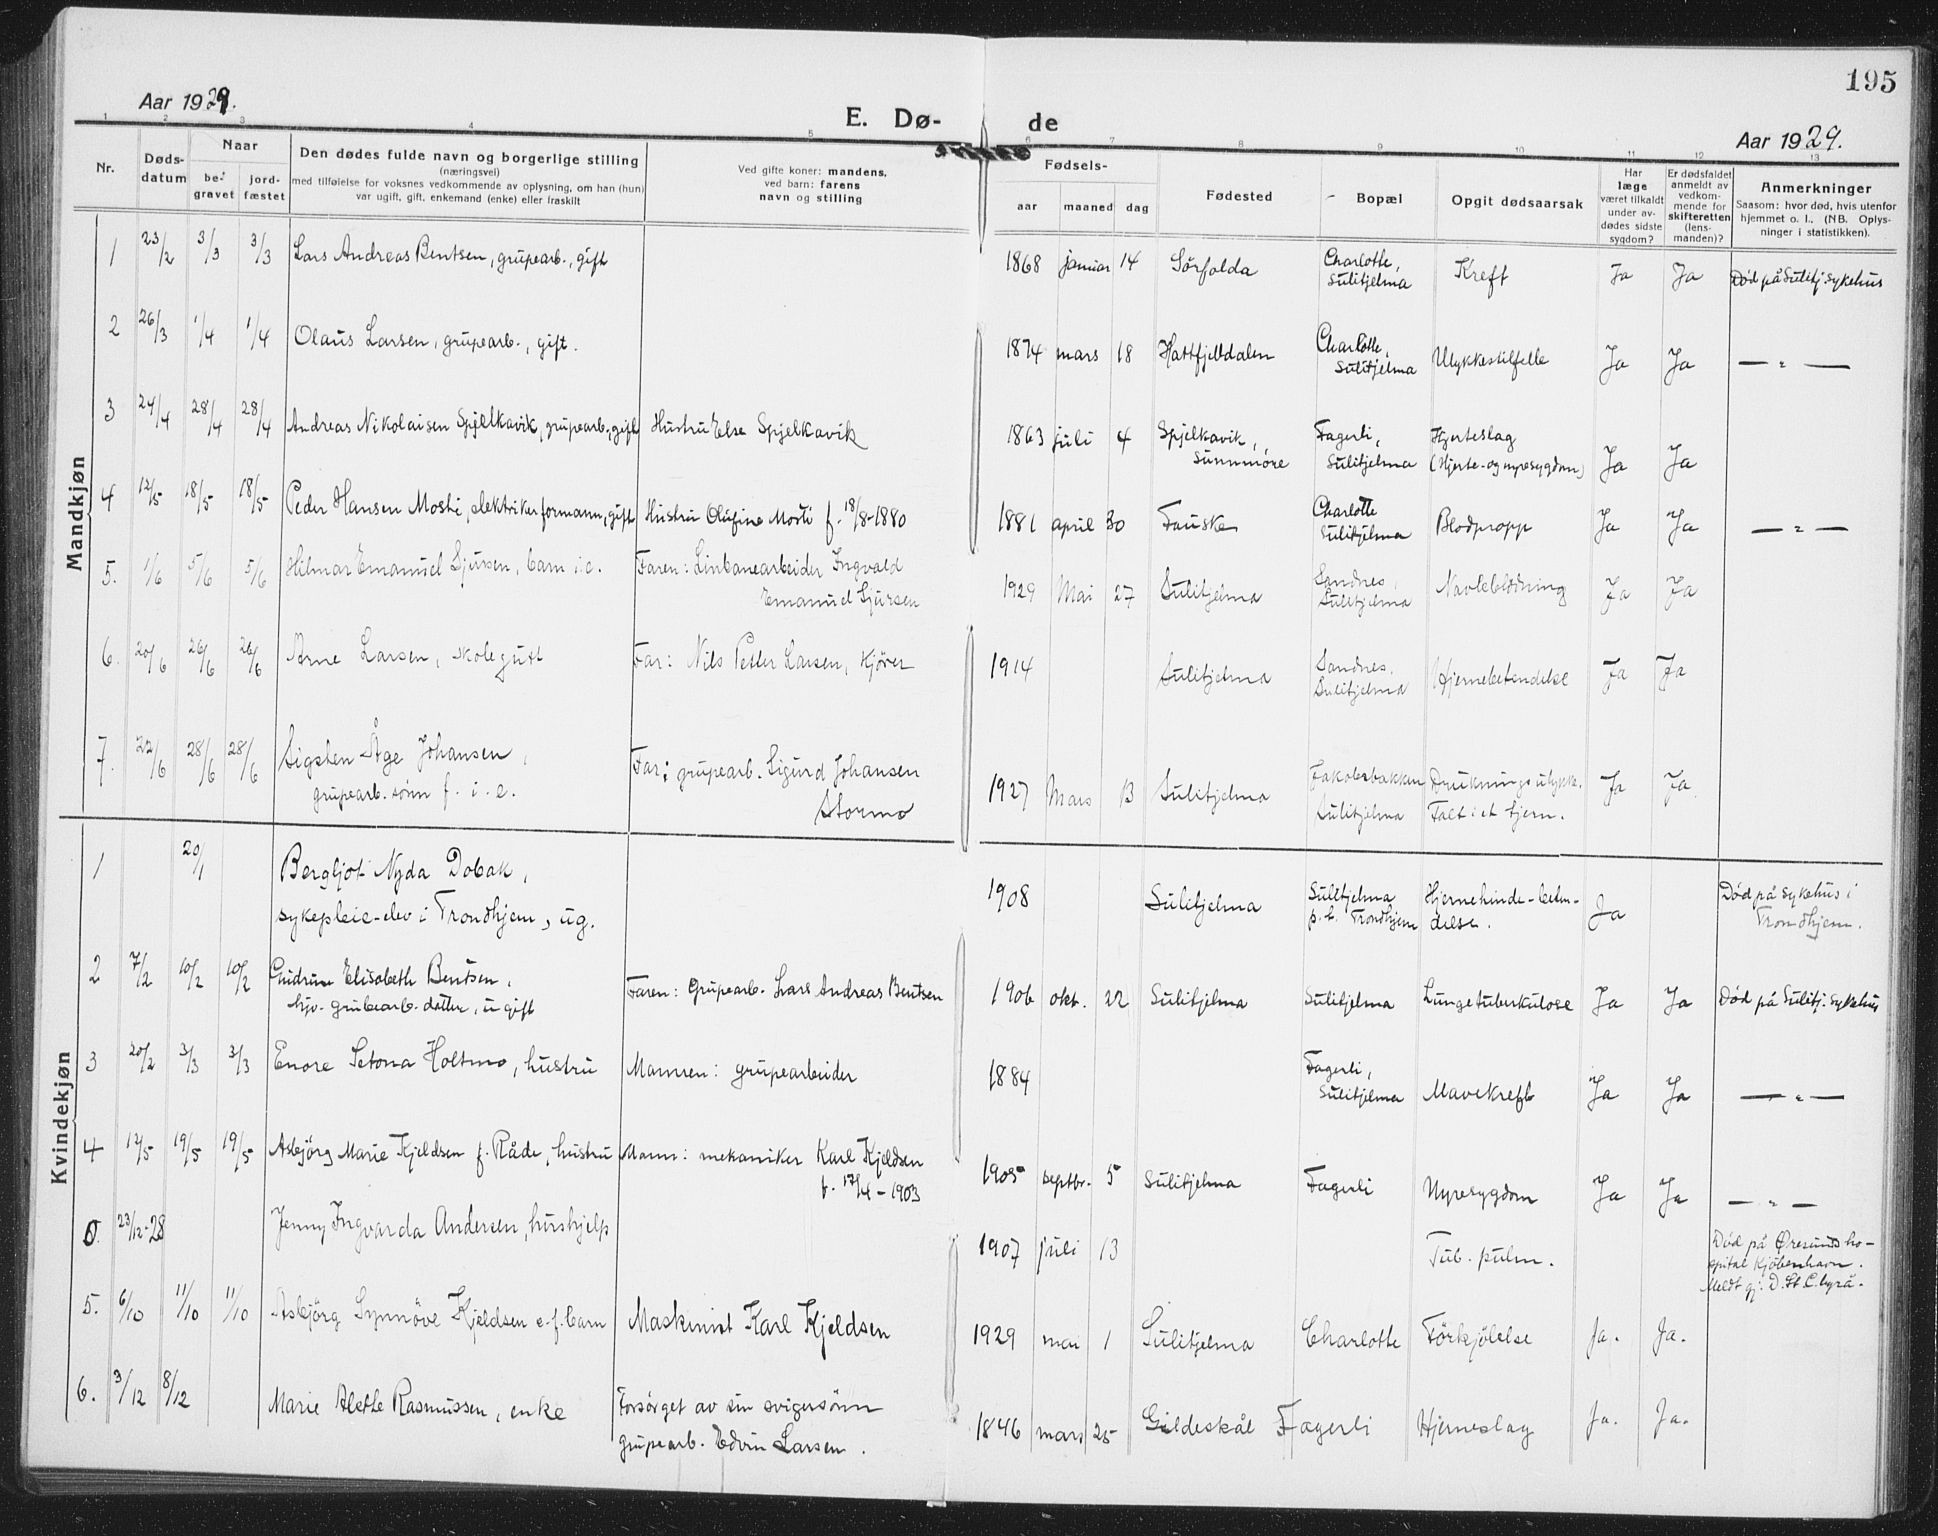 195
Aar 1929.
E. Dø-
de
Aar 1929.
1 2 3 4 5 6 7 8 9 10 11 12 13
Nr.
Døds-
datum
Naar
be-
gravet
jord-
fæstet
Den dødes fulde navn og borgerlige stilling
(næringsvei)
med tilføielse for voksnes vedkommende av oplysning, om han (hun)
var ugift, gift, enkemand (enke) eller fraskilt
Ved gifte koner: mandens,
ved barn: farens
navn og stilling
Fødsels-
aar
maaned
dag
Fødested
Bopæl
Opgit dødsaarsak
Har
læge
været tilkaldt
under av-
dødes sidste
sygdom?
Er dødsfaldet
anmeldt av
vedkom-
mende for
skifteretten
(lens-
manden)?
Anmerkninger
Saasom: hvor død, hvis utenfor
hjemmet o. l., (NB. Oplys-
ninger i statistikken).
Mandkjøn
1 23/2 3/3 3/3 Lars Andreas Bentsen, grupearb., gift 1868 januar 14 Sörfolda Charlotte, Sulitjelma Kreft Ja Ja Død på Sulitj. sykehus
2 26/3 1/4 1/4 Olaus Larsen, grupearb., gift. 1874 mars 18 Hattfjelldalen Charlotte, Sulitjelma Ulykkestilfelle Ja Ja — " —
3 24/4 28/4 28/4 Andreas Nikolaisen Spjelkavik, grupearb., gift Hustru Else Spjelkavik 1863 juli 4 Spjelkavik, Sunnmöre Fagerli, Sulitjelma Hjerteslag (Hjerte- og nyresygdom) Ja Ja
4 12/5 18/5 18/5 Peder Hansen Mosti, elektriker formann, gift Hustru Olufine Mosti f. 18/8-1880 1881 april 30 Fauske Charlotte Sulitjelma Blodpropp Ja Ja — " —
5. 1/6 5/6 5/6 Hilmar Emanuel Sjursen, barn i.e. Faren: Linbanearbeider Ingvald Emanuel Sjursen 1929 Mai 27 Sulitjelma Sandnes, Sulitjelma Navleblödning Ja Ja
6. 20/6 26/6 26/6 Arne Larsen, skolegutt Far: Nils Petter Larsen, kjörer 1914 Sulitjelma Sandnes, Sulitjelma Hjernebetendelse Ja Ja
7. 22/6 28/6 28/6 Sigsten Åge Johansen,
grupearb. sönn f. i. e. Far: grupearb. Sigurd Johansen Stormo 1927 Mars 13 Sulitjelma Jakobsbakken Sulitjelma Drukningsulykk. Falt i et tjern. Ja Ja
Kvindekjøn
1 20/1 Bergljot Nyda Dobak,
sykepleie-elev i Trondhjem, ug. 1908 Sulitjelma Sulitjelma p.t. Trondhjem Hjernehinde-beten-delse. Ja Død på sykehus i Trondhjem.
2 7/2 10/2 10/2 Gudrun Elisabeth Bentsen,
hjv. grubearb. datter, u gift Faren: Grupearb. Lars Andreas Bentsen 1906 okt. 22 Sulitjelma Sulitjelma Lungetuberkulose Ja Ja Død på Sulitj. sykehus
3 20/2 3/3 3/3 Enore Setona Holtmo, hustru Mannen: grupearbeider 1884 Fagerli, Sulitjelma Mavekreft Ja Ja — " —
4 12/5 19/5 19/5 Asbjörg Marie Kjeldsen f. Råde, hustru Mann: mekaniker Karl Kjeldsen f. 17/4-1903 1905 septbr. 5 Sulitjelma Fagerli Nyresygdom Ja Ja — " —
0. 23/12-28 Jenny Ingvarda Andersen, hushjelp 1907 juli 13 Tub. pulm. Død på Øresundho-
spital Kjöbenhavn.
Meldt gj. D. St. C. byrå.
5. 6/10 11/10 11/10 Asbjörg Synnöve Kjeldsen e.f. barn Maskinist Karl Kjeldsen 1929 mai 1 Sulitjelma Charlotte Förkjölelse Ja. Ja.
6. 3/12 8/12 Marie Alethe Rasmussen, enke Forsörget av sin svigersönn
grupearb. Edvin Larsen. 1846 mars 25 Gildeskål Fagerli Hjerneslag Ja. Ja.